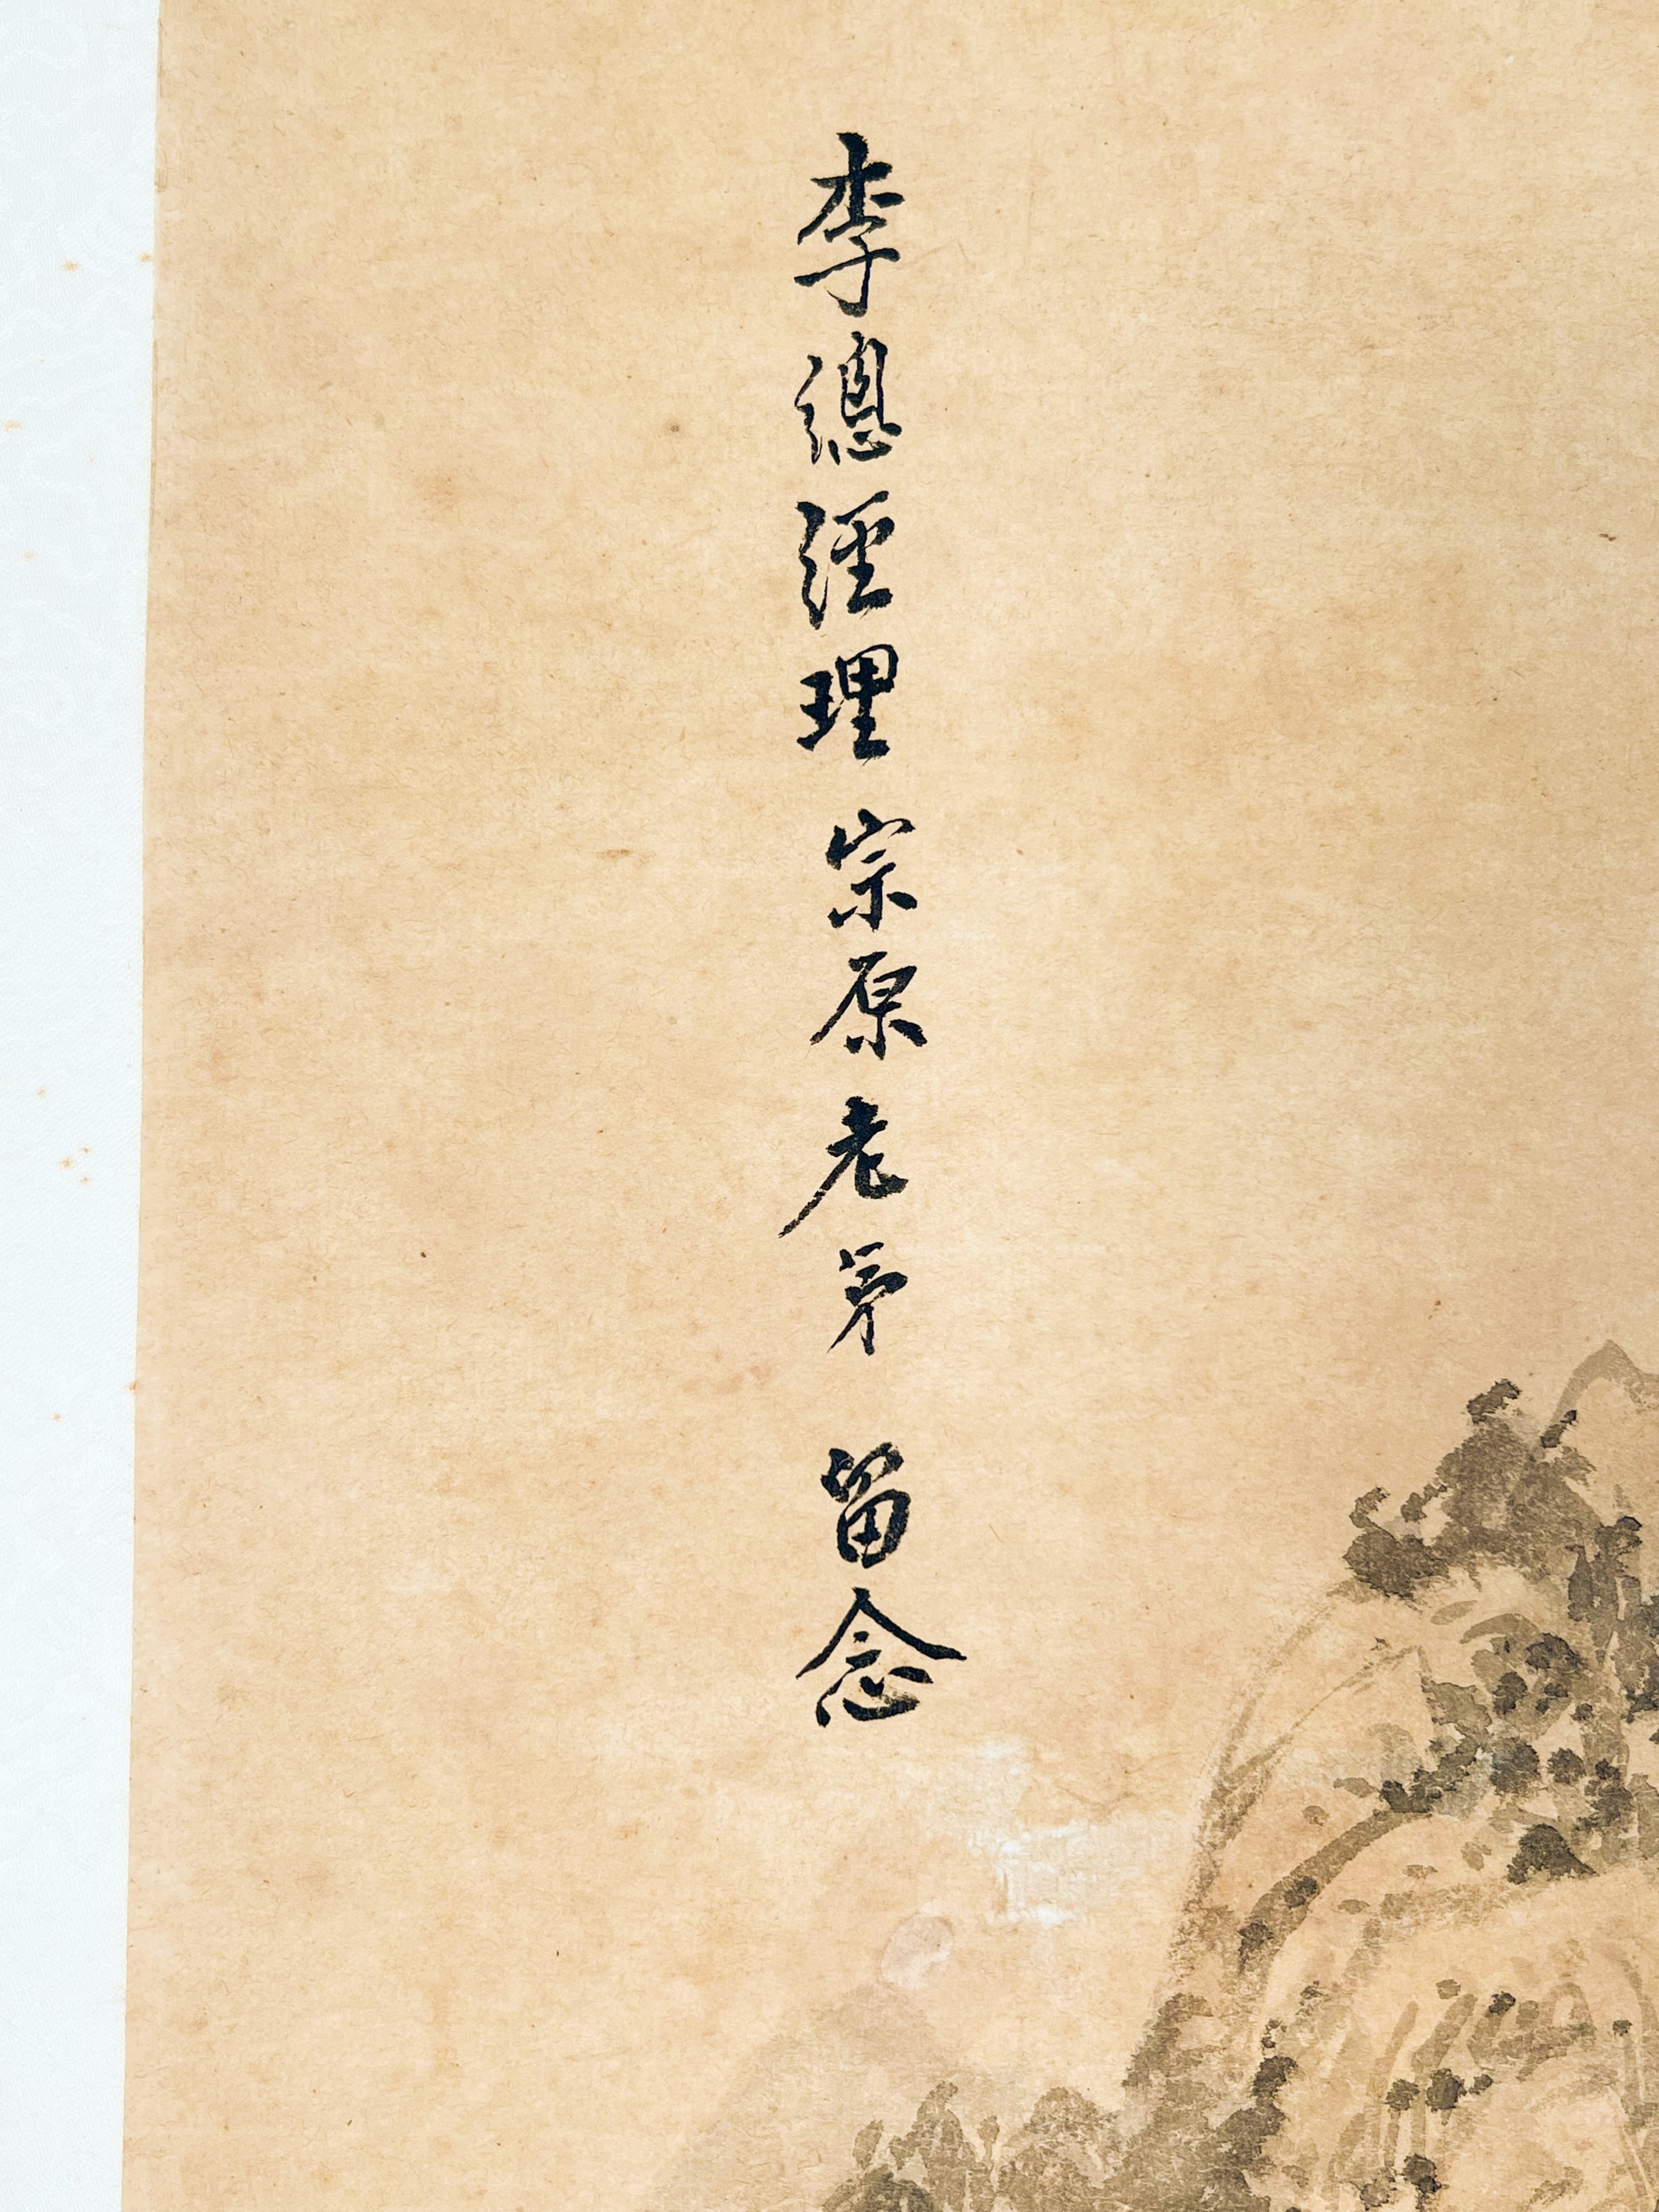 李總經理宗原老弟留念